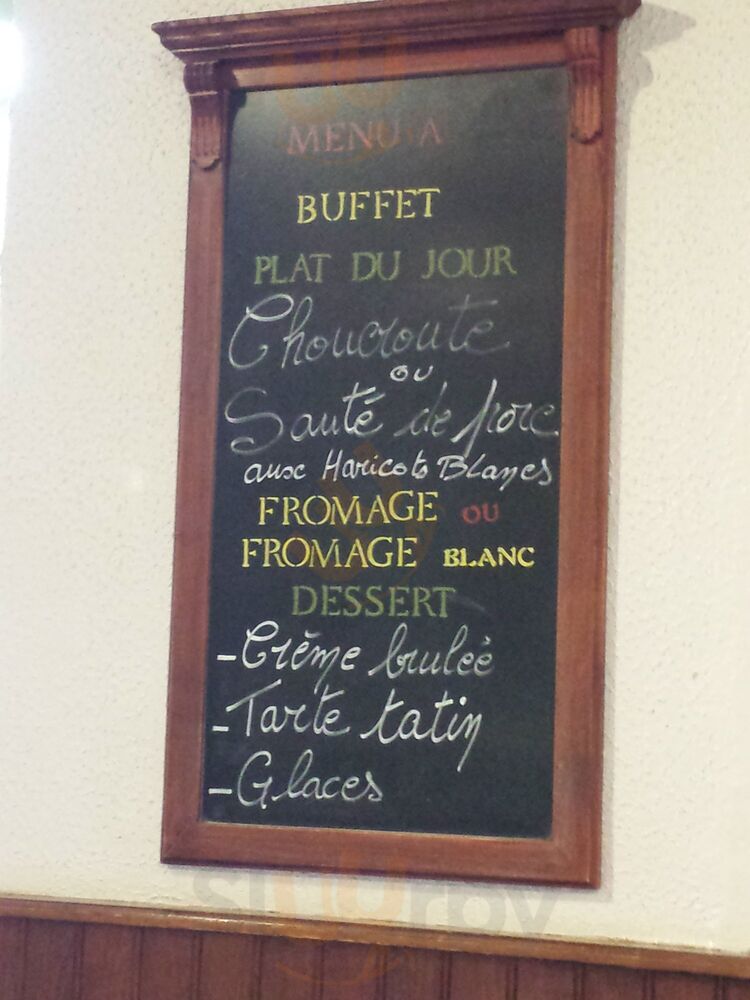 MENU A
BUFFET
PLAT DU JOUR
Choucroute
ou
Sauté de porc
aux Haricots Blancs
FROMAGE OU
FROMAGE BLANC
DESSERT
-Crème bruleè
-Tarte tatin
-Glaces